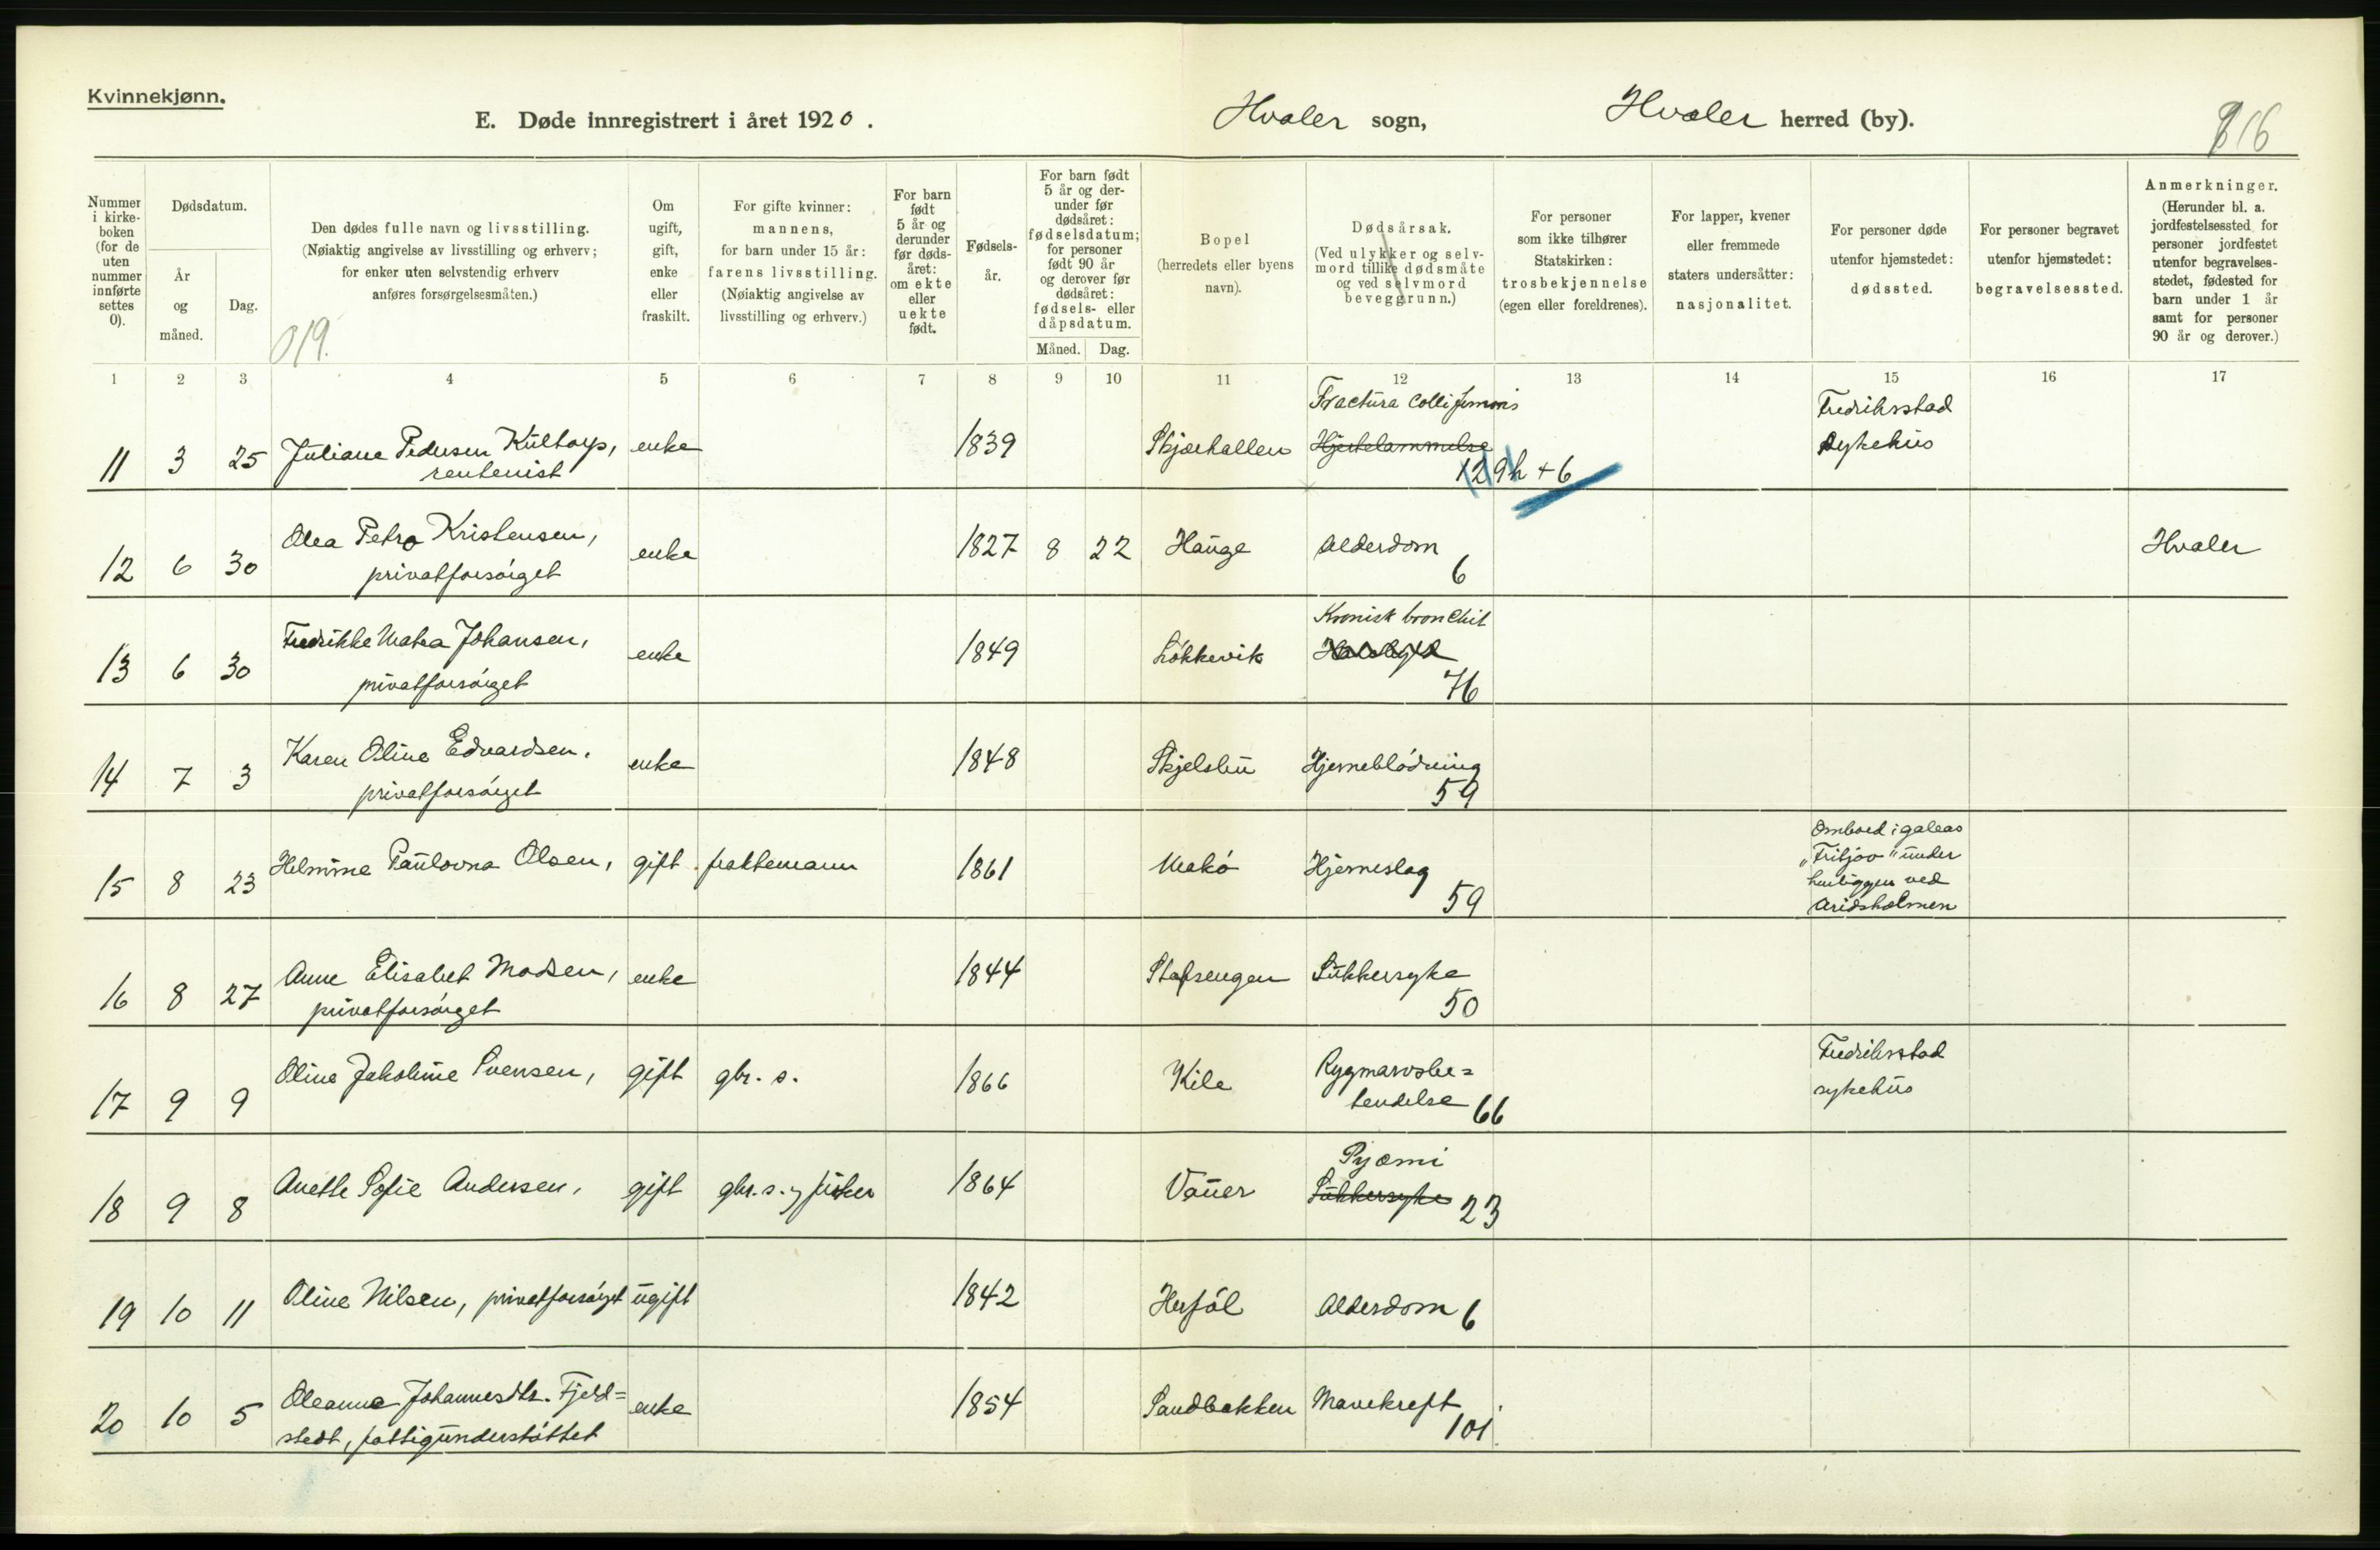 Kvinnekjønn.
E. Døde innregistrert i året 1920.
Hvaler sogn,
Hvaler herred (by).
816
Nummer i kirke- boken (for de uten nummer innførte settes 0).
Dødsdatum.
År og måned.
Dag.
Den dødes fulle navn og livsstilling.
(Nøiaktig angivelse av livsstilling og erhverv;
for enker uten selvstendig erhverv
anføres forsørgelsesmåten.)
019.
Om ugift, gift, enke eller fraskilt.
For gifte kvinner:
mannens,
for barn under 15 år:
farens livsstilling.
(Nøiaktig angivelse av
livsstilling og erhverv.)
For barn født 5 år og derunder før døds- året: om ekte eller uekte født.
Fødsels- år.
For barn født 5 år og der- under før dødsåret: fødselsdatum; for personer født 90 år og derover før dødsåret: fødsels- eller dåpsdatum.
Måned. Dag.
Bopel
(herredets eller byens
navn).
Dødsårsak.
(Ved ulykker og selv-
mord tillike dødsmåte
og ved selvmord
beveggrunn.)
For personer
som ikke tilhører
Statskirken:
trosbekjennelse
(egen eller foreldrenes).
For lapper, kvener
eller fremmede
staters undersåtter:
nasjonalitet.
For personer døde
utenfor hjemstedet:
dødssted.
For personer begravet
utenfor hjemstedet:
begravelsessted.
Anmerkninger.
(Herunder bl. a.
jordfestelsessted for
personer jordfestet
utenfor begravelses-
stedet, fødested for
barn under 1 år
samt for personer
90 år og derover.)
1 2 3 4 5 6 7 8 9 10 11 12 13 14 15 16 17
11 3 25 Juliane Pedersen Kultorp, rentenist enke 1839 Skjærhallen Fractura colli femoris Hjertelammelse 129b + 6 Fredrikstad sykehus
12 6 30 Olea Petra Kristensen, privatforsørget enke 1827 8 22 Hauge Alderdom 6 Hvaler
13 6 30 Fredrikke Matea Johansen, privatforsørget enke 1849 Løkkevik Kronisk bronchit 76
14 7 3 Karen Oline Edvardsen, privatforsørget enke 1848 Skjelsbu Hjerneblødning 59
15 8 23 Helmine Paulovna Olsen, gift fraktemann 1861 Makø Hjerneslag 59 Ombord i galeas "Fritjov" under ved
16 8 27 Anne Elisabet Madsen, privatforsørget enke 1844 Stafsengen Sukkersyke 50
17 9 9 Oline Jakobine Svensen, gift gbr. s. 1866 Kile Rygmarvsbe= tendelse 66 Fredrikstad sykehus
18 9 8 Anette Sofie Andersen, gift gbr. s. og fisker 1864 Vauer Pyæmi Sukkersyke 23
19 10 11 Oline Nilsen, privatforsørget ugift 1842 Herføl Alderdom 6
20 10 5 Oleanna Johannesdtr. Fjeld= stedt, fattigunderstøttet enke 1854 Sandbakken Mavekreft 101